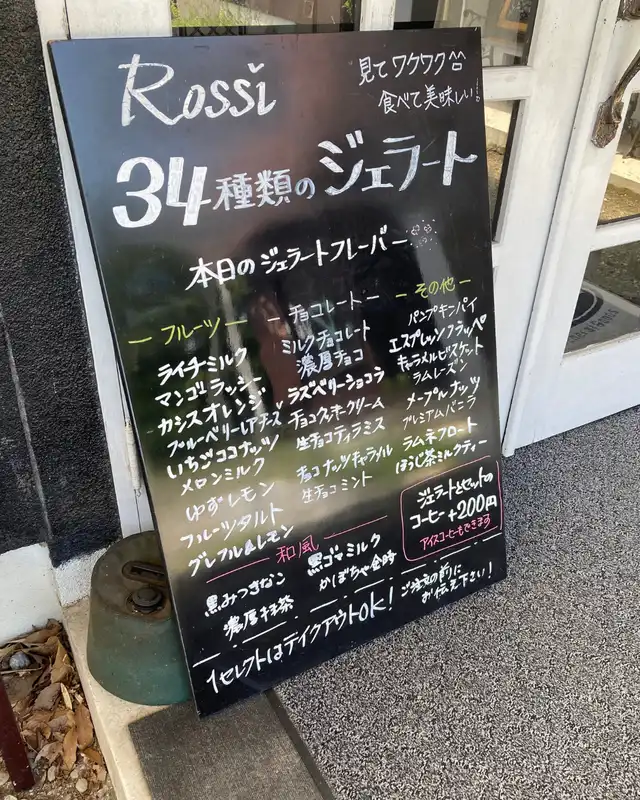 Rossi
見てワクワク^^
食べて美味しい!
34種類のジェラート
本日のジェラートフレーバー
― フルーツ ―
ライチミルク
マンゴラッシー
カシスオレンジ
ブルーベリーレアチーズ
いちごココナッツ
メロンミルク
ゆずレモン
フルーツタルト
グレフル&レモン
― チョコレート ―
ミルクチョコレート
濃厚チョコ
ラズベリーショコラ
チョコクッキークリーム
生チョコティラミス
チョコナッツキャラメル
生チョコミント
― その他 ―
パンプキンパイ
エスプレッソフラッペ
キャラメルビスケット
ラムレーズン
メープルナッツ
プレミアムバニラ
ラムネフロート
ほうじ茶ミルクティー
― 和風 ―
黒みつきなこ
濃厚抹茶
黒ゴマミルク
かぼちゃ金時
ジェラートとセットの
コーヒー+200円
アイスコーヒーもできます
1セレクトはテイクアウトOK!
ご注文の前に
お伝え下さい!